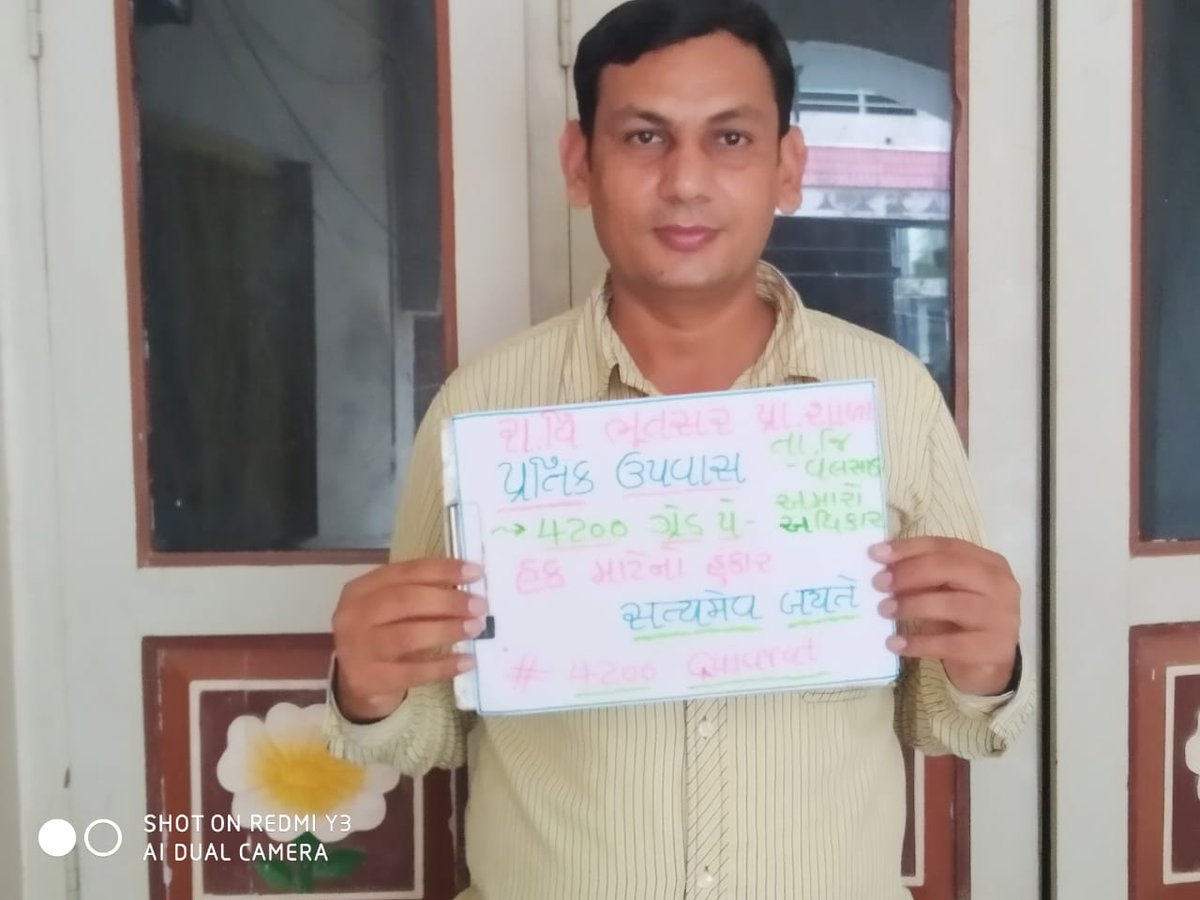 રા.વિ ભૂતસર પ્રા.શાળા
તા.જિ
- વલસાડ
પ્રતિક ઉપવાસ
→ 4200 ગ્રેડ પે -
અમારો
અધિકાર
હક માટેના હુંકાર
સત્યમેવ જયતે
# 4200
SHOT ON REDMI Y3
AI DUAL CAMERA